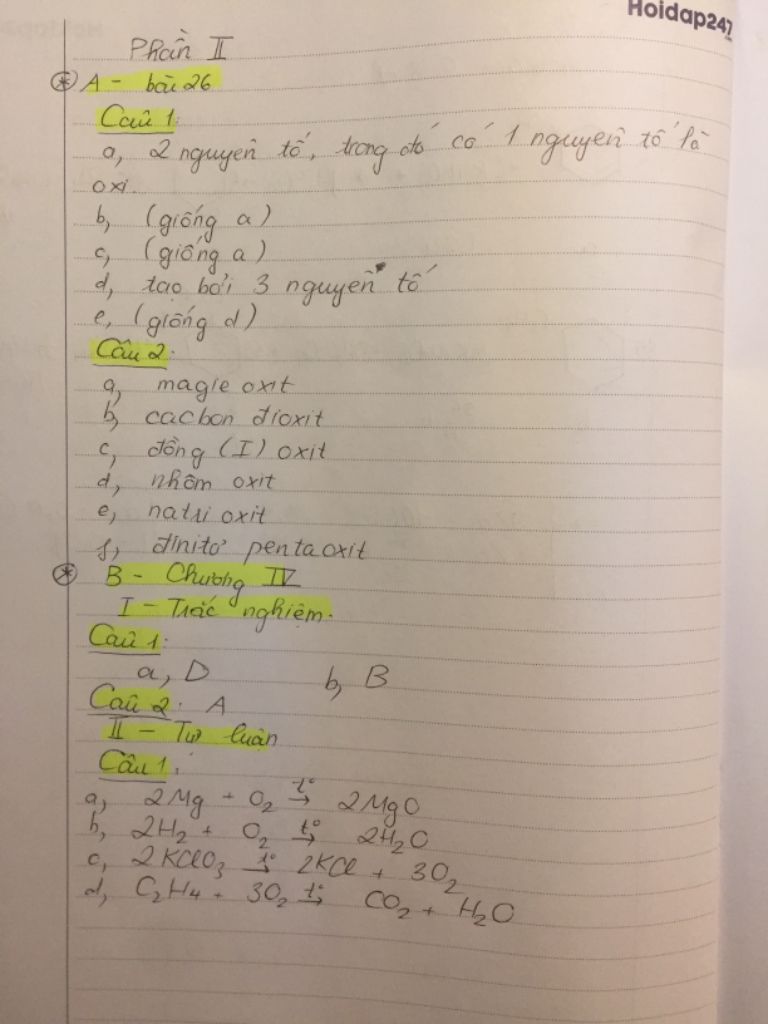 Hoidap247
Phần II
* A - bài 26
Câu 1:
a, 2 nguyên tố, trong đó có 1 nguyên tố là
oxi.
b, (giống a)
c, (giống a)
d, tạo bởi 3 nguyên tố
e, (giống d)
Câu 2:
a, magie oxit
b, cacbon đioxit
c, đồng (I) oxit
d, nhôm oxit
e, natri oxit
f, đinitơ pentaoxit
* B - Chương IV
I - Trắc nghiệm.
Câu 1:
a, D b, B
Câu 2: A
II - Tự luận
Câu 1:
a, 2Mg + O₂ t°→ 2MgO
b, 2H₂ + O₂ t°→ 2H₂O
c, 2KClO₃ t°→ 2KCl + 3O₂
d, C₂H₄ + 3O₂ t°→ CO₂ + H₂O